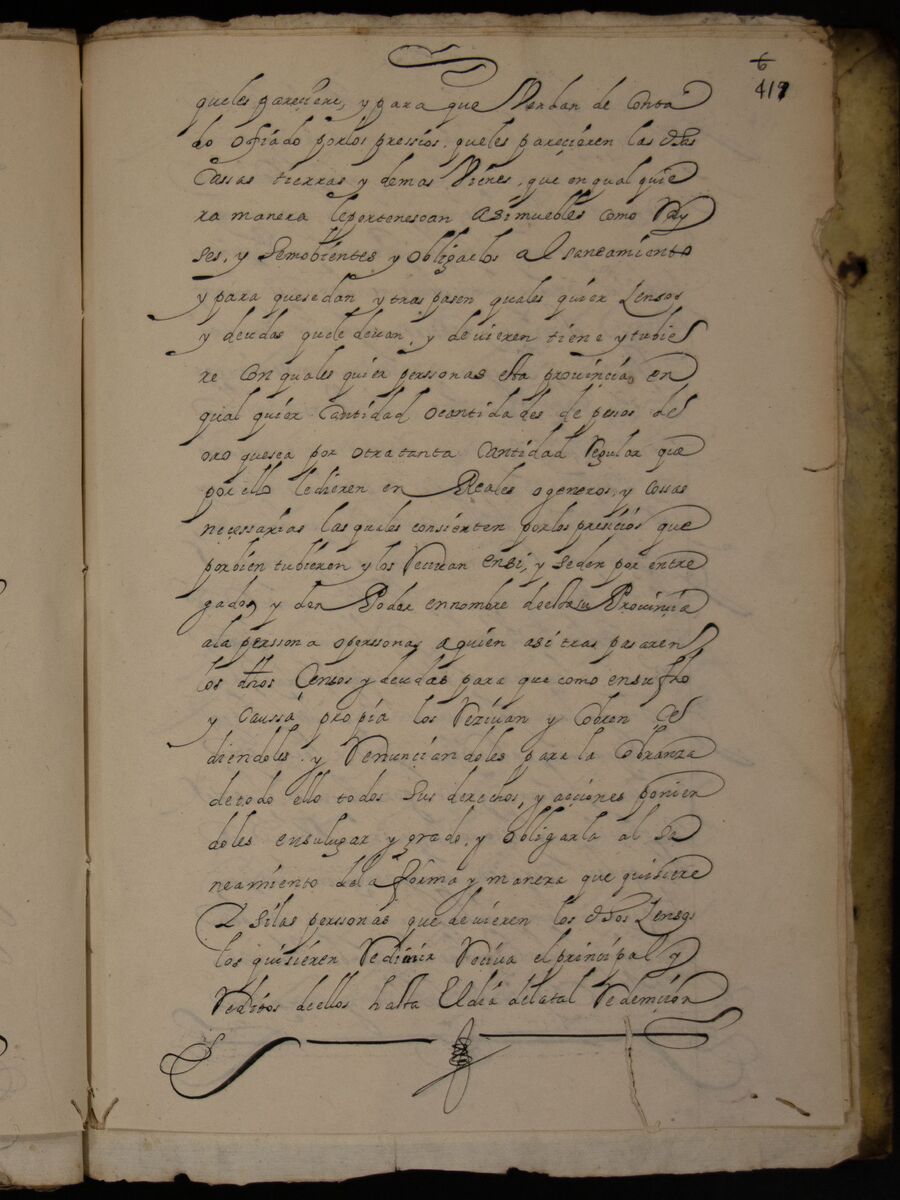 6
419
queles pareçiere, y para que Vendan de Conta
do ofiado porlos pressios. queles pareçieren las dhas
Cassas tierras y demas Vienes, que en qual quie
ra manera lepertenescan Asimuebles como Ray
ses, y Semobientes y obligarlos al saneamiento
y para quesedan y tras pasen quales quier Zensos
y deudas quele deuan, y deuieren tiene y tubie
re Con quales quier perssonas esta provinçia, en
qual quier Cantidad, ocantidades de pesos de
oro quesea por otra tanta Cantidad Regular que
por ello ledieren en Reales ogeneros, y Cossas
neçessarias las quales consierten porlos presiçios que
porbien tubieren y los Reciuan ensi, y seden por entre
gados y den Poder ennombre deeldhasu Provinçia
ala perssona operssonas aquien asi tras pasaren
los dhos Çensos y deudas para que como ensu fho
y Caussa propia los Reziuan y Cobren Ce
diendoles. y Renunçiandoles para la Cobranza
detodo ello todos sus derechos, y açiones ponien
doles ensulugar y grado, y obligarla al Sa
neamiento dela forma y manera que quisiere
Y silas perssonas que deuieren los dhos Zensos
los quisieren Redimir Reciua el prinçipal y
Reditos deellos hasta El dia delatal Redemçion